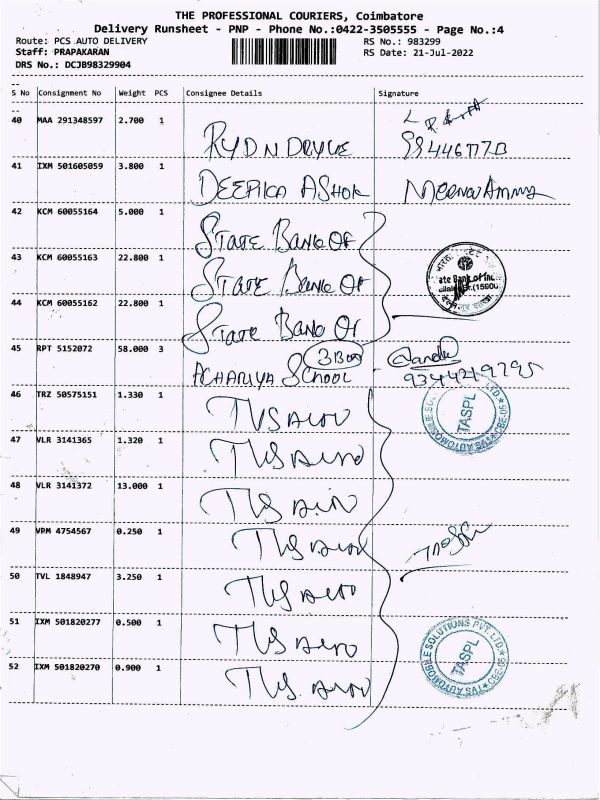 THE PROFESSIONAL COURIERS, Coimbatore
Delivery Runsheet - PNP - Phone No.:0422-3505555 - Page No.:4
Route: PCS AUTO DELIVERY RS No.: 983299
Staff: PRAPAKARAN RS Date: 21-Jul-2022
DRS No.: DCJB98329904
S No Consignment No Weight PCS Consignee Details Signature
40 MAA 291348597 2.700 1
41 IXM 501605059 3.800 1 DEEPIKA ASHOK
42 KCM 60055164 5.000 1 STATE BANK OF
43 KCM 60055163 22.800 1 STATE BANK OF
44 KCM 60055162 22.800 1 STATE BANK OF
45 RPT 5152072 58.000 3 ACHARIYA SCHOOL 3 Box 9344219795
46 TRZ 50575151 1.330 1 TVS AUTO
47 VLR 3141365 1.320 1 TVS AUTO
48 VLR 3141372 13.000 1 TVS AUTO
49 VPM 4754567 0.250 1 TVS AUTO
50 TVL 1848947 3.250 1 TVS AUTO
51 IXM 501820277 0.500 1 TVS AUTO
52 IXM 501820270 0.900 1 TVS AUTO
TASPL
TVS AUTOMOBILE SOLUTIONS PVT. LTD. CBE-05
TASPL